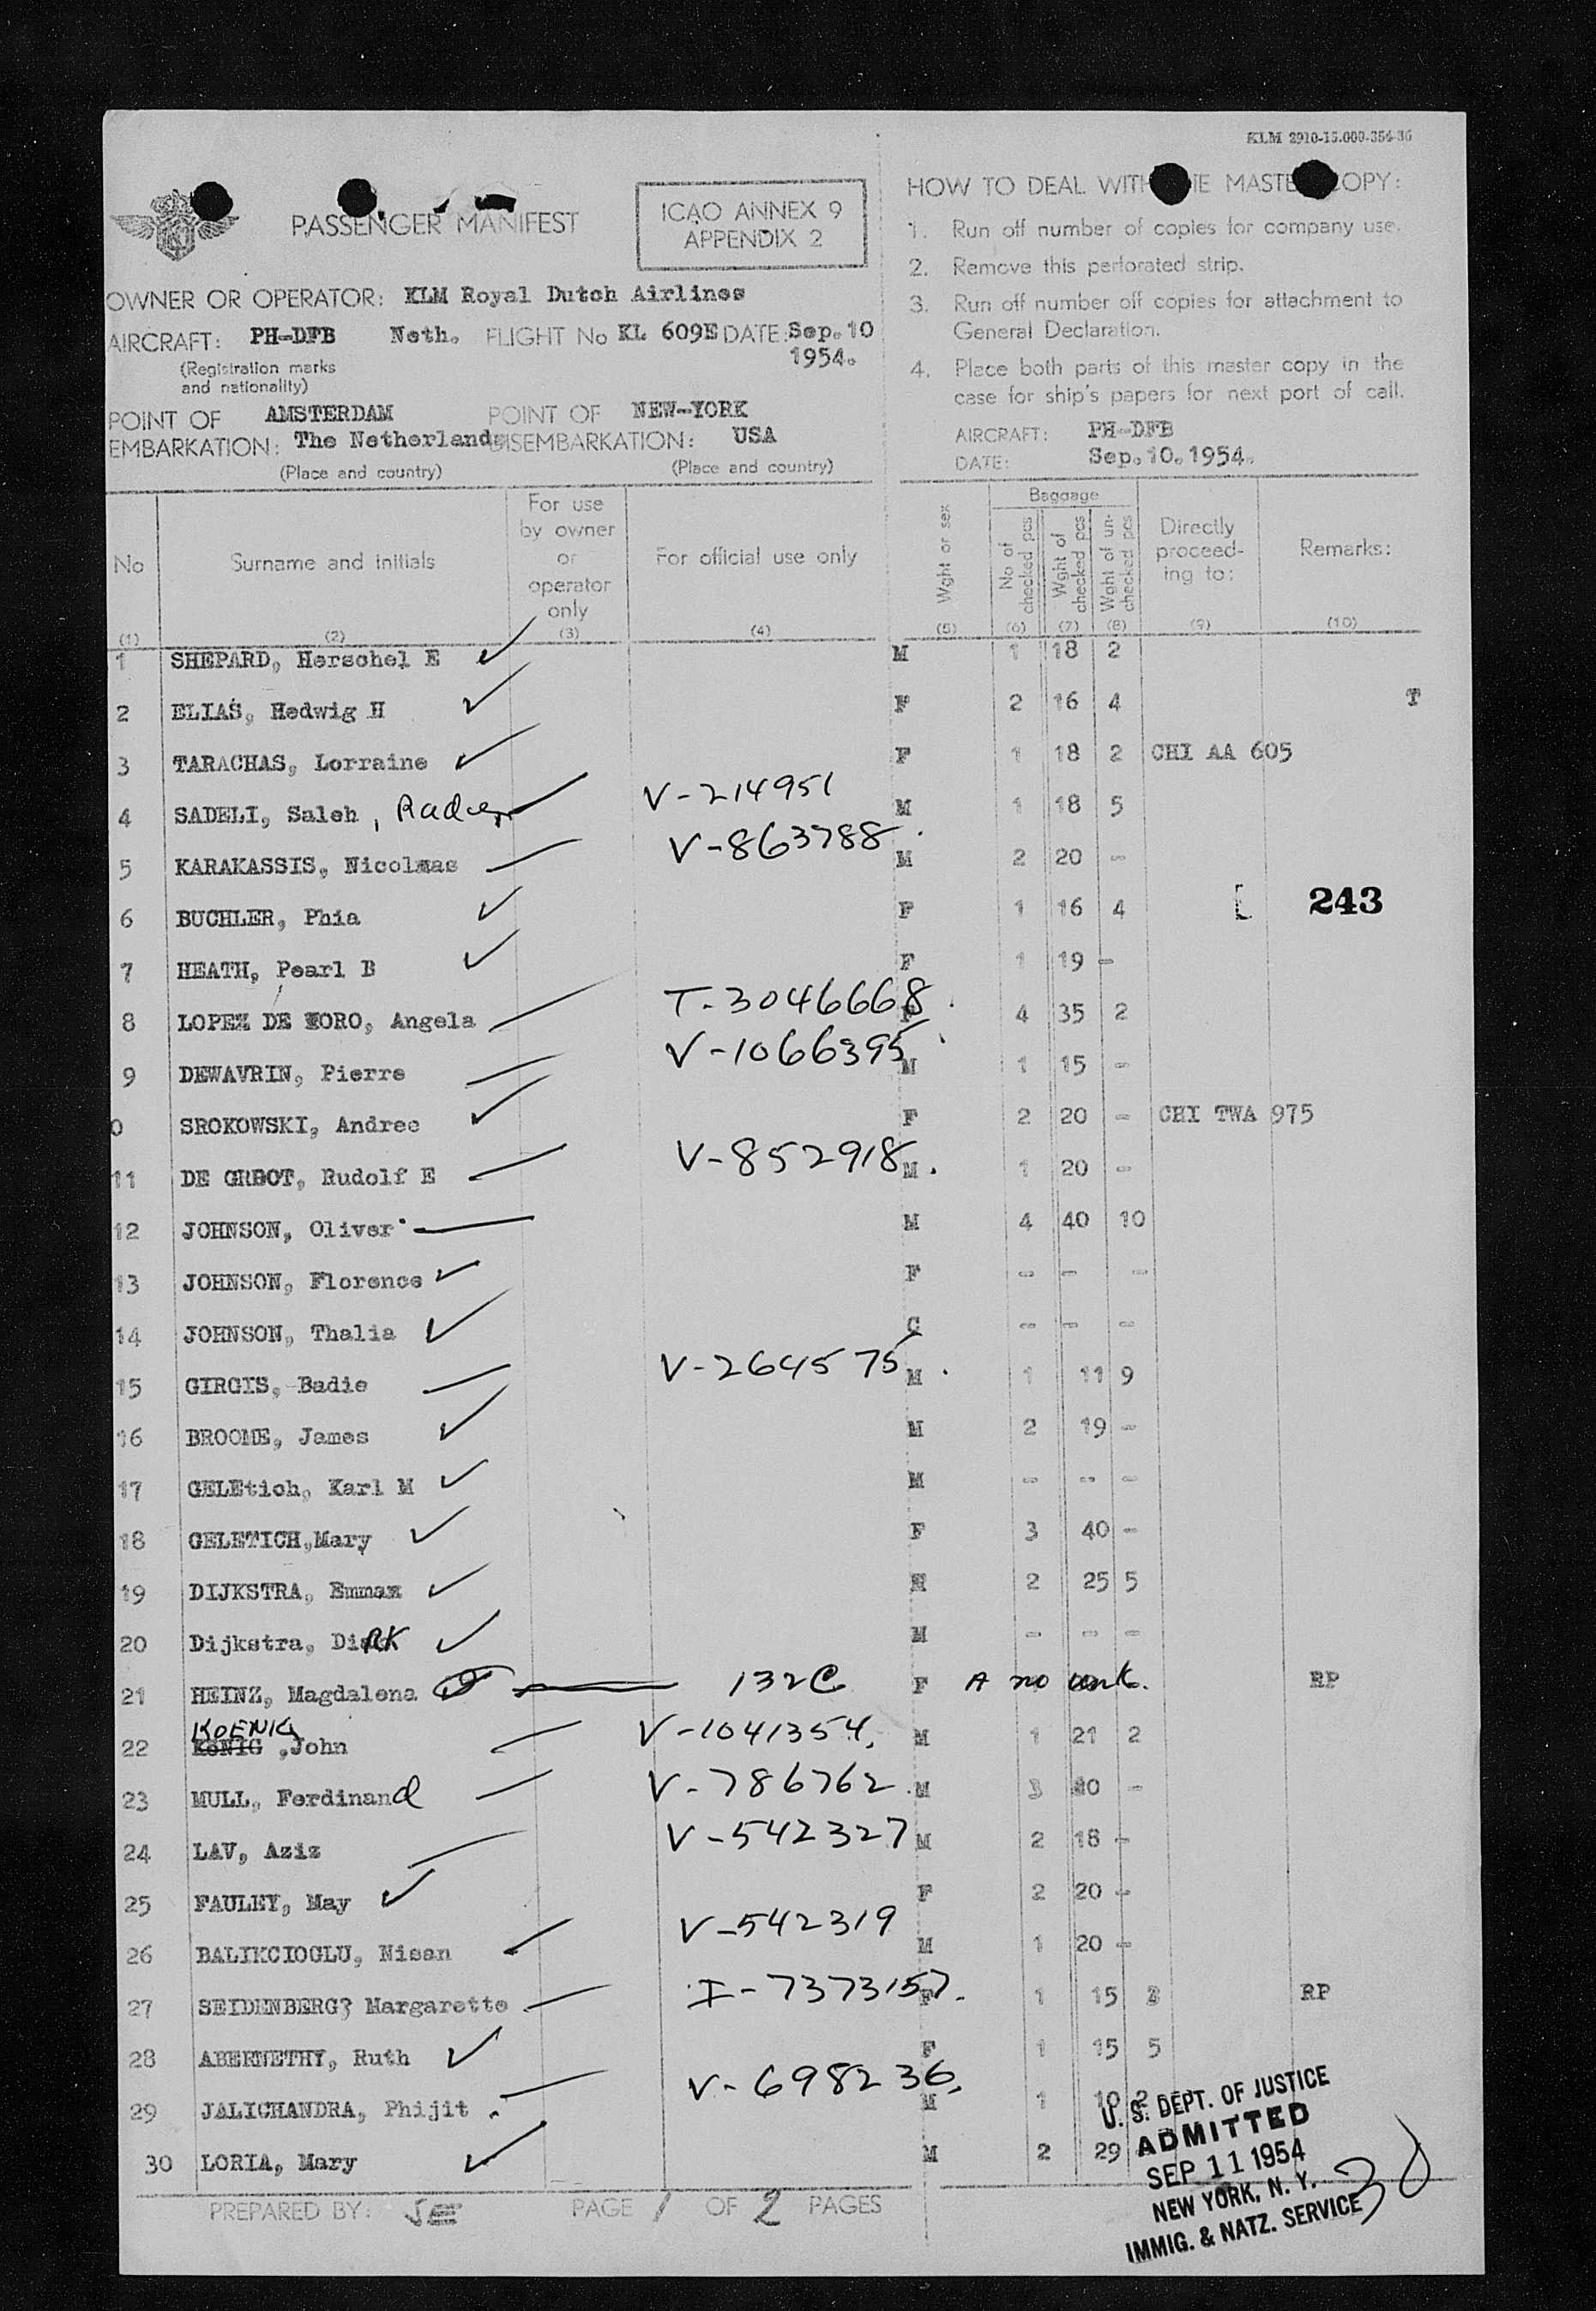 KLM 2910-15.000-354-36
PASSENGER MANIFEST
ICAO ANNEX 9
APPENDIX 2
OWNER OR OPERATOR: KLM Royal Dutch Airlines
AIRCRAFT: PH-DFB Neth. FLIGHT No KL 609E DATE: Sep.10
1954.
(Registration marks
and nationality)
POINT OF AMSTERDAM POINT OF NEW-YORK
EMBARKATION: The Netherlands DISEMBARKATION: USA
(Place and country) (Place and country)
HOW TO DEAL WITH THE MASTER COPY:
1. Run off number of copies for company use.
2. Remove this perforated strip.
3. Run off number off copies for attachment to
General Declaration.
4. Place both parts of this master copy in the
case for ship's papers for next port of call.
AIRCRAFT: PH-DFB
DATE: Sep.10.1954.
No
Surname and initials
For use
by owner
or
operator
only
For official use only
Wght or sex
Baggage
No of
checked pcs
Wght of
checked pcs
Wght of un-
checked pcs
Directly
proceed-
ing to:
Remarks:
(1) (2) (3) (4) (5) (6) (7) (8) (9) (10)
1 SHEPARD, Herschel E M 1 18 2
2 ELIAS, Hedwig H F 2 16 4 T
3 TARACHAS, Lorraine F 1 18 2 CHI AA 605
4 SADELI, Saleh, V-214951 M 1 18 5
5 KARAKASSIS, Nicolmas V-863788 M 2 20 -
6 BUCHLER, Phia F 1 16 4
243
7 HEATH, Pearl B F 1 19 -
8 LOPEZ DE TORO, Angela T-3046668 F 4 35 2
9 DEWAVRIN, Pierre V-1066395 M 1 15 -
0 SROKOWSKI, Andree F 2 20 - CHI TWA 975
11 DE GROOT, Rudolf E V-852918 M 1 20 -
12 JOHNSON, Oliver M 4 40 10
13 JOHNSON, Florence F - - -
14 JOHNSON, Thalia C - - -
15 GIRGIS, Badie V-264575 M 1 11 9
16 BROOME, James M 2 19 -
17 GELEtich, Karl M M - - -
18 GELETICH,Mary F 3 40 -
19 DIJKSTRA, Emmax M 2 25 5
20 Dijkstra, DiRK M - - -
21 HEINZ, Magdalena 132C F A no RP
KOENIG
22 KöNIG ,John V-1041354 M 1 21 2
23 MULL, Ferdinand V-786762 M 3 40 -
24 LAV, Aziz V-542327 M 2 18 -
25 FAULEY, May F 2 20 -
26 BALIKCIOGLU, Nisan V-542319 M 1 20 -
27 SEIDENBERG? Margarette I-7373157 F 1 15 RP
28 ABERNETHY, Ruth F 1 15 5
29 JALICHANDRA, Phijit V-698236 M 1 10 2
30 LORIA, Mary M 2 29
U. S. DEPT. OF JUSTICE
ADMITTED
SEP 11 1954
NEW YORK, N. Y.
IMMIG. & NATZ. SERVICE
30
PREPARED BY: JE PAGE 1 OF 2 PAGES